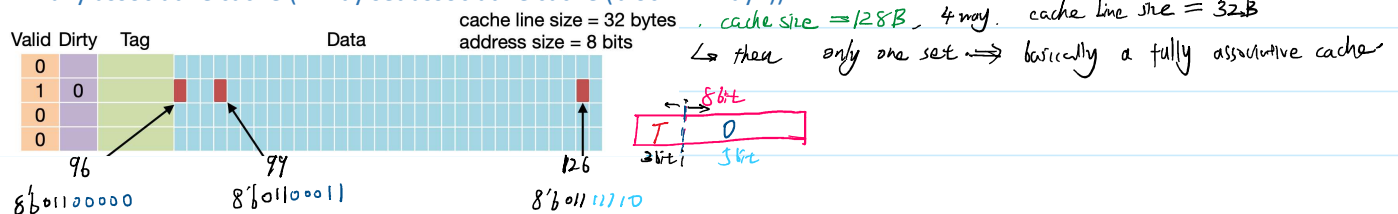 cache line size = 32 bytes
address size = 8 bits
. cache size = 128B, 4 way. cache line size = 32B
↳ then only one set ⟹ basically a fully associative cache
Valid Dirty Tag Data
0
1 0
0
0
8bit
T O
3bit 5bit
96 99 126
8'b01100000 8'b01100011 8'b01111110